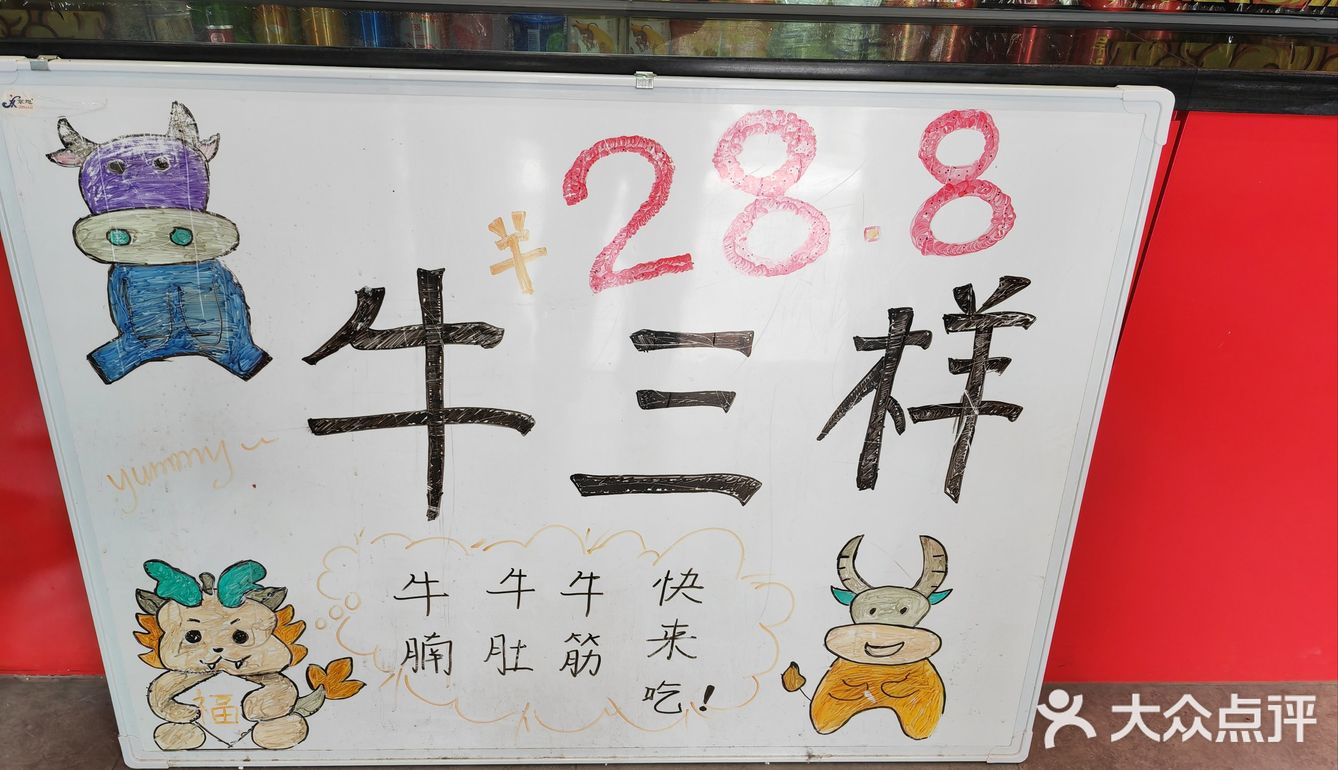 ¥28.8
牛三样
yummy~
牛腩
牛肚
牛筋
快来吃!
福
大众点评